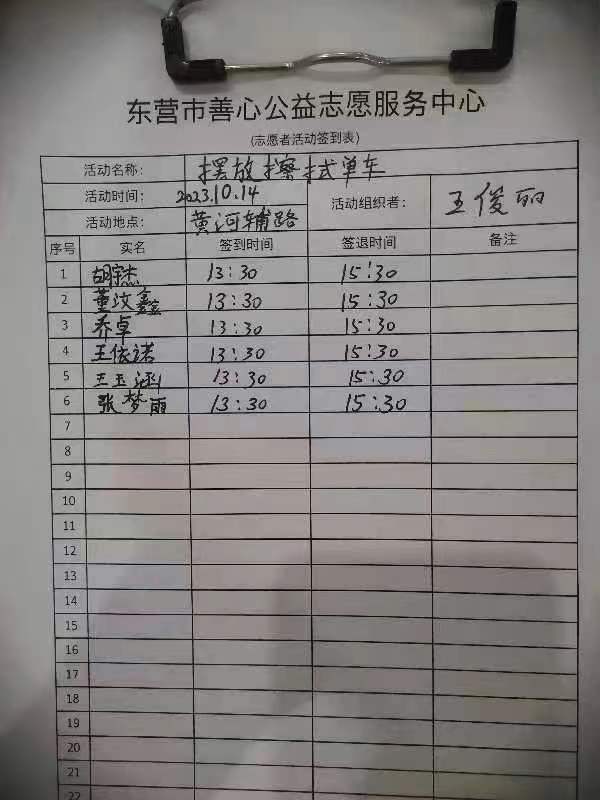 东营市善心公益志愿服务中心
(志愿者活动签到表)
活动名称： 摆放擦拭单车
活动时间： 2023.10.14 活动组织者： 王俊丽
活动地点： 黄河辅路
序号 实名 签到时间 签退时间 备注
1 胡宇杰 13:30 15:30
2 董汶鑫 13:30 15:30
3 乔卓 13:30 15:30
4 王依诺 13:30 15:30
5 王玉涵 13:30 15:30
6 张梦丽 13:30 15:30
7
8
9
10
11
12
13
14
15
16
17
18
19
20
21
22